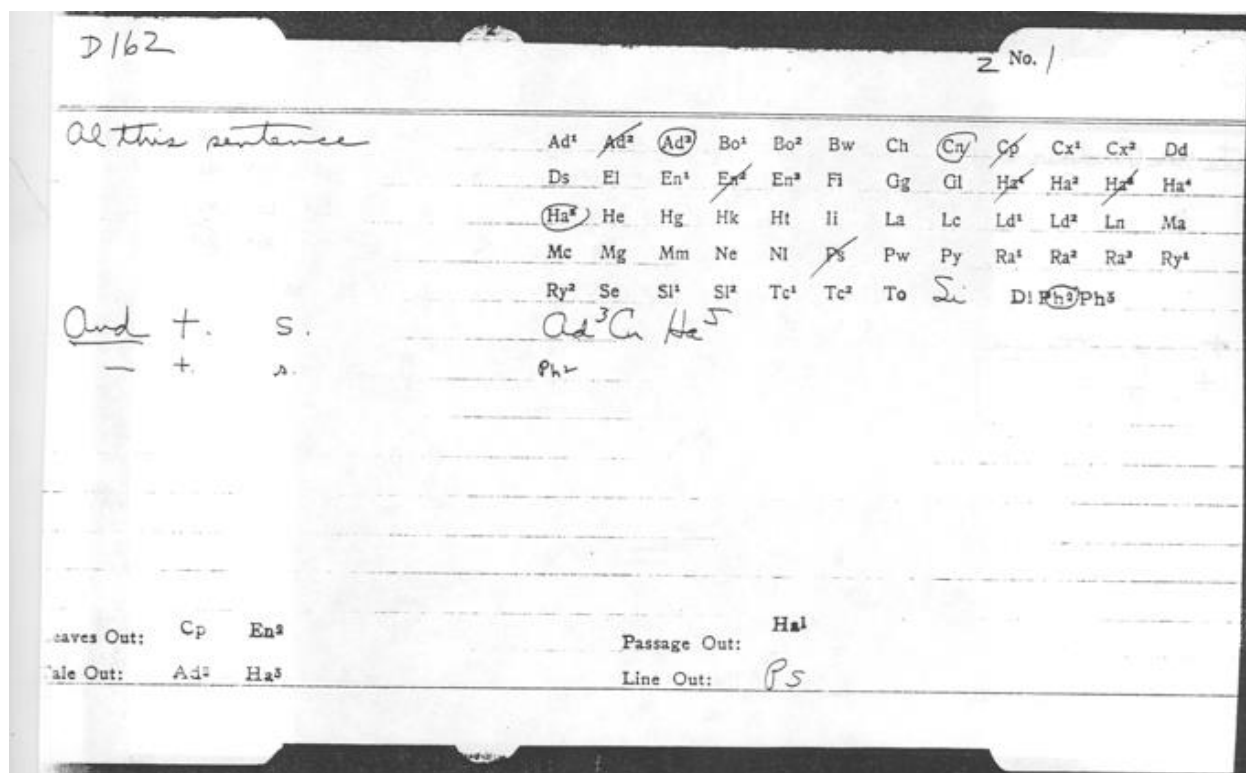 D162
Z No. 1
Al this sentence
Ad¹ Ad² Ad³ Bo¹ Bo² Bw Ch Cn Cp Cx¹ Cx² Dd
Ds El En¹ En² En³ Fi Gg Gl Ha¹ Ha² Ha³ Ha⁴
Ha⁵ He Hg Hk Ht Ii La Lc Ld¹ Ld² Ln Ma
Mc Mg Mm Ne Nl Ps Pw Py Ra¹ Ra² Ra³ Ry¹
Ry² Se Sl¹ Sl² Tc¹ Tc² To Si D! Ph² Ph³
And +. S. Ad³ Cn Ha⁵
— +. s. Ph²
eaves Out: Cp En² Passage Out: Ha¹
ale Out: Ad² Ha³ Line Out: Ps